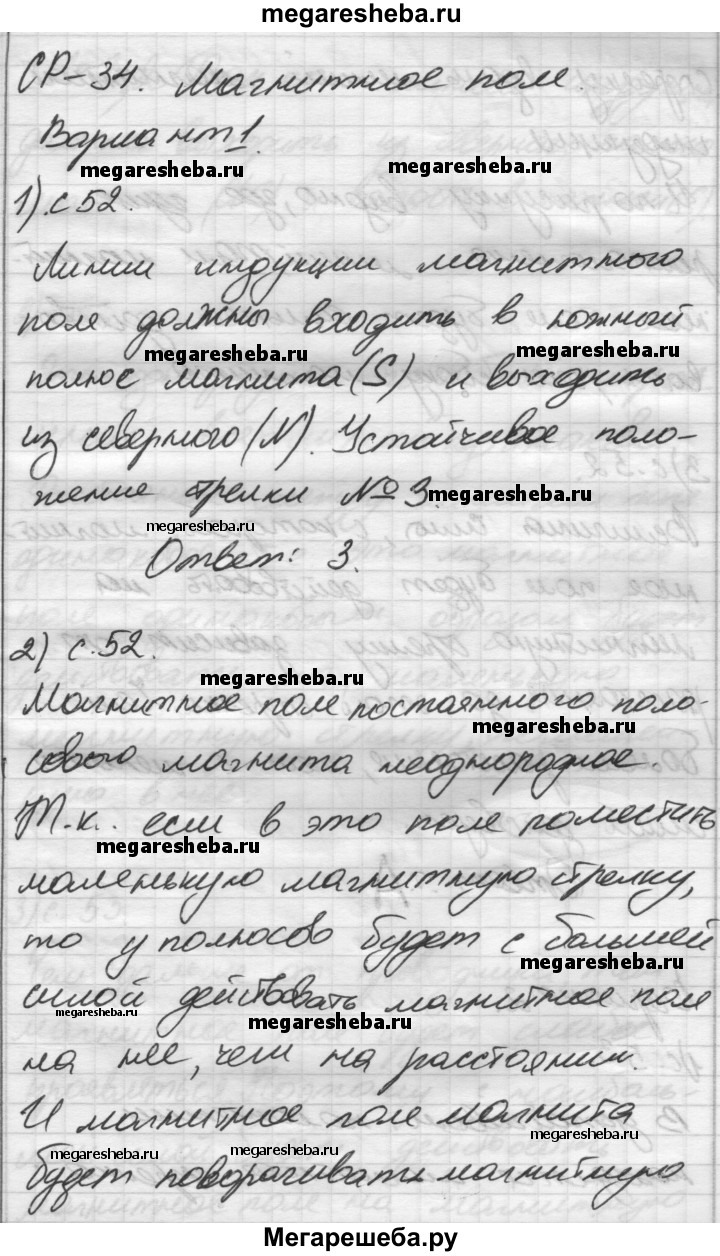 megaresheba.ru
СР-34. Магнитное поле.
Вариант 1.
megaresheba.ru megaresheba.ru
1). с 52.
Линии индукции магнитного
поле должны входить в южный
megaresheba.ru megaresheba.ru
полюс магнита (S) и выходить
из северного (N). Устойчивое поло-
жение стрелки № 3.
megaresheba.ru
megaresheba.ru
Ответ: 3.
2) с. 52.
megaresheba.ru
Магнитное поле постоянного поло-
megaresheba.ru
сового магнита, неоднородное.
Т.к. если в это поле поместить
megaresheba.ru
маленькую магнитную стрелку,
то у полюсов будет с большей
megaresheba.ru
силой действовать магнитное поле
megaresheba.ru megaresheba.ru
на нее, чем на расстоянии.
И магнитное поле магнита
megaresheba.ru megaresheba.ru megaresheba.ru
будет поворачивать магнитную
Мегарешеба.ру